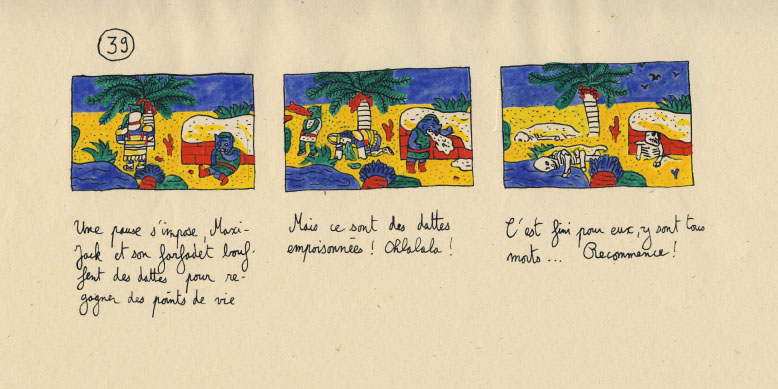 39
Une pause s'impose, Maxi-
Jack et son farfadet bouf-
fent des dattes pour re-
gagner des points de vie
Mais ce sont des dattes
empoisonnées ! Ohlalala !
C'est fini pour eux, y sont tous
morts... Recommence !